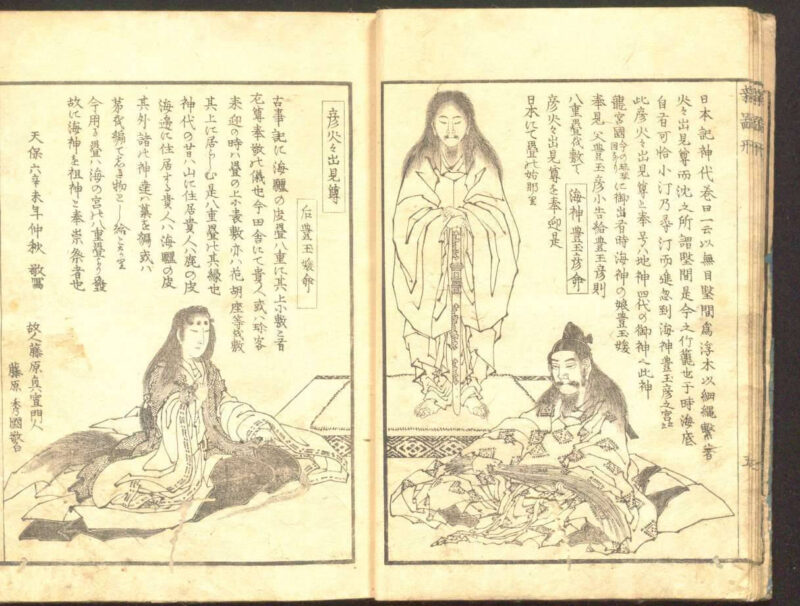 日本記神代巻曰一云以無目堅間為浮木以細縄繋著
火々出見尊而沈之所謂堅間是今之竹籠也于時海底
自有可怜小汀乃尋汀而進忽到海神豊玉彦之宮云
此彦火々出見尊と奉号ハ地神四代の御神也此神
龍宮國に御出有時海神の娘豊玉媛
奉見父豊玉彦小告給豊玉彦則
八重畳を敷て
海神豊玉彦命
彦火々出見尊を奉迎是
日本にて畳の始那里
彦火々出見尊
后豊玉媛命
古事記に海驢の皮畳八重に其上小敷と有
尊奉敬の儀也今田舎にて貴人或ハ珍客
来迎の時ハ畳の上小表敷亦ハ花胡座等を敷
其上に居らしむ是八重畳の其縁也
神代の昔ハ山に住居貴人ハ鹿の皮
海邊に住居する貴人ハ海驢の皮
其外諸の神達ハ藁を編或ハ
茅を編て
今用る畳ハ海の宮の八重畳より
故に海神を祖神と奉崇祭者也
天保六辛未年仲秋 敬圖
故人藤原真宣門人
藤原秀國敬白
五